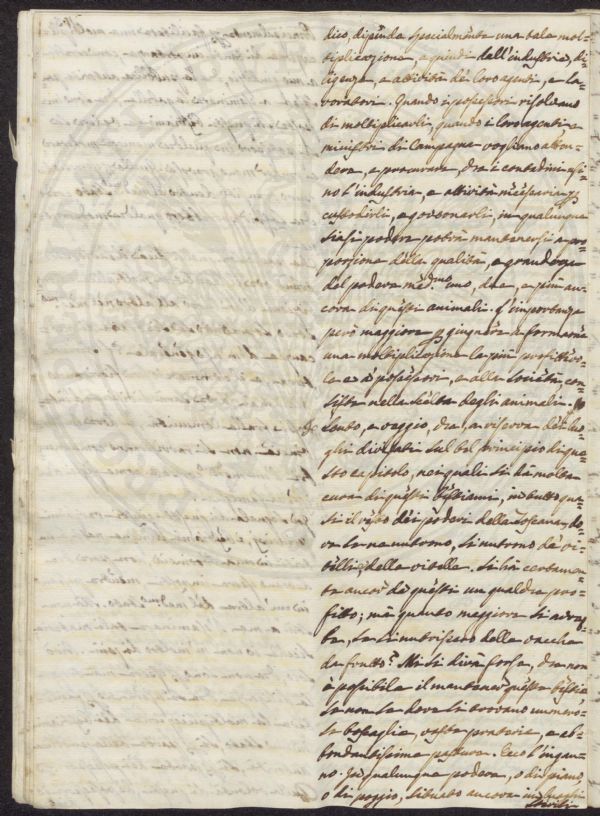 dico, dipende specialmente una tale mol-
tiplicazione, e quindi dall'industria, di-
ligenza, e attività de' loro agenti, e la-
voratori. Quando i possessori risolvano
di moltiplicarli, quando i loro agenti, e
ministri di Campagna vogliano atten-
dere, e procurare, che i contadini usi-
no l'industria, e attività necessaria p
custodirli, e governarli, in qualunque
siasi podere potrà mantenersi a pro-
porzione della qualità, e grandezza
del podere med.mo uno, due, e più an-
cora di questi animali. L'importanza
però maggiore p giugnere a formarne
una moltiplicazione la più profittevo-
le e a' possessori, e alla Società, con-
siste nella scelta degli animali. Io
sento, e veggio, che, a riserva de' luo-
ghi divisati sul bel principio di que-
sto capitolo, nei quali si ha molta
cura di questi bestiami, in tutto qua-
si il resto dei poderi della Toscana, do-
ve se ne untrono, si nutrono de' vi-
telli, e delle vitelle. Si hà certamen-
te ancor da questi un qualche pro-
fitto; mà quanto maggiore si avreb-
be, se si nutrissero delle vacche
da frutto? Mi si dirà forse, che non
è possibile il mantener queste bestie
se non se dove si trovano numero-
se boscaglie, vaste praterie, e ab-
bondantissime pasture. Ecco l'ingan-
no. In qualunque podere, o di piano,
o di poggio, situato ancora in luoghi
sterili